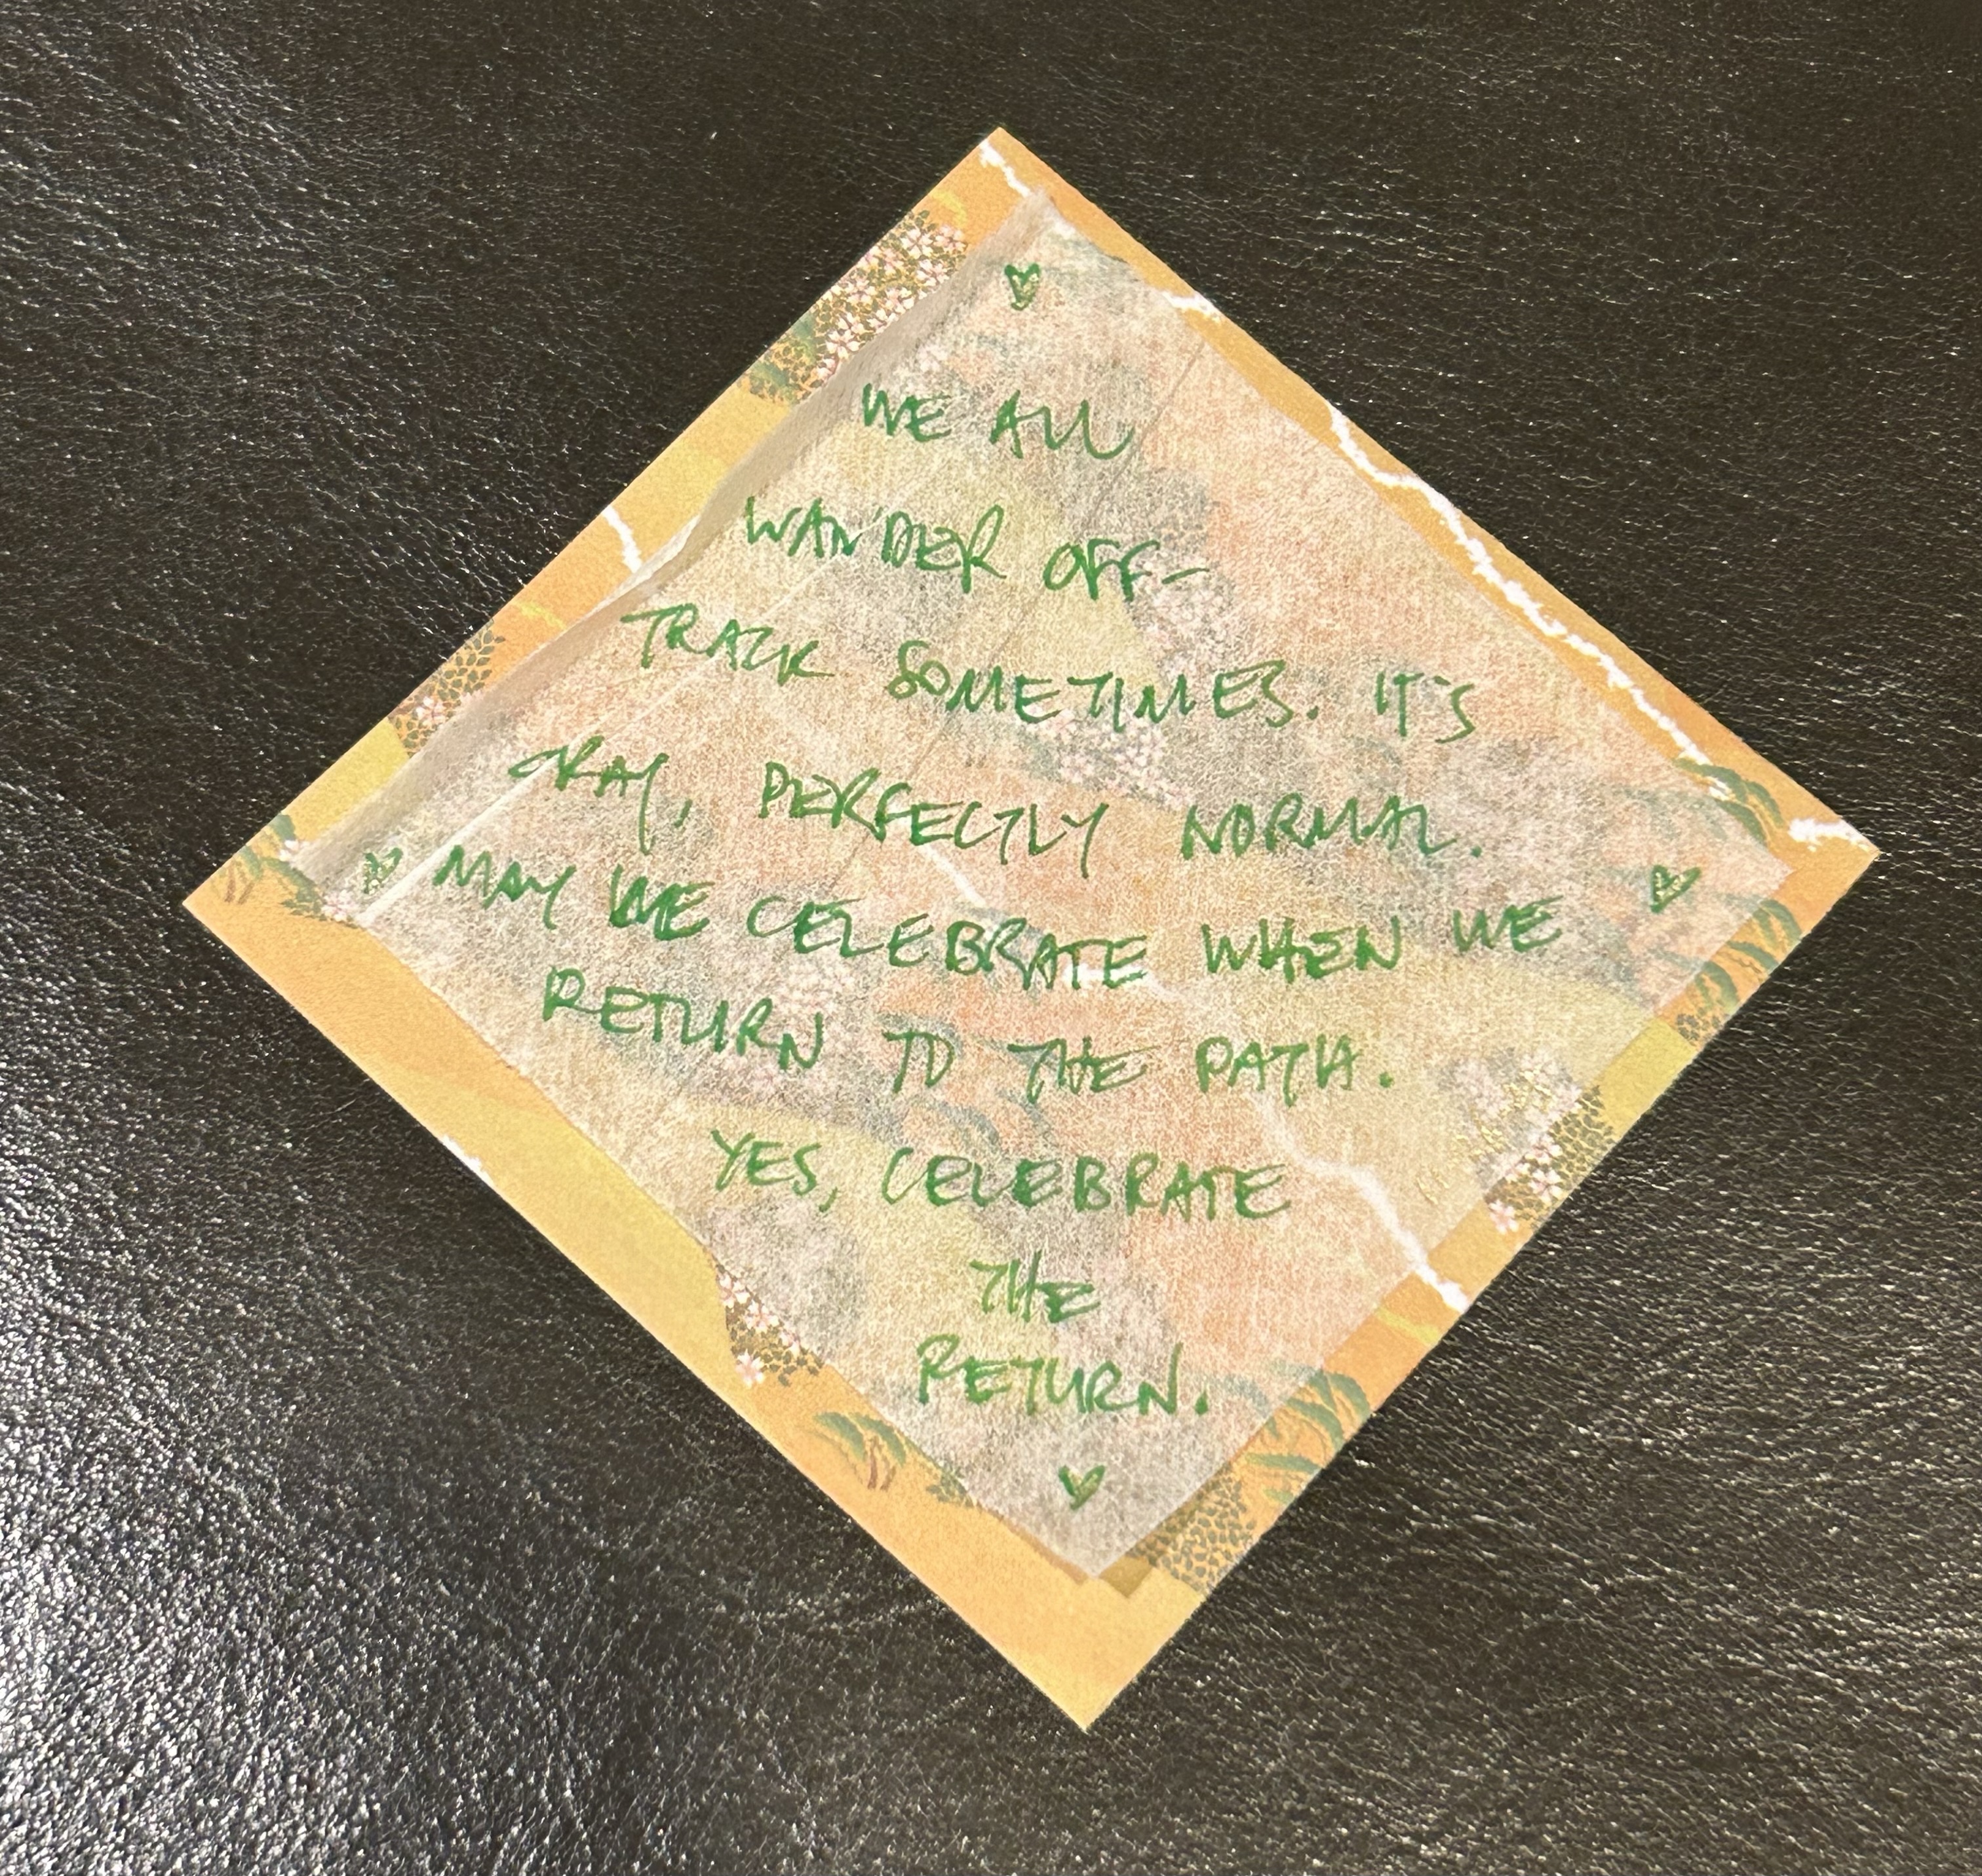 WE ALL
WANDER OFF-
TRACK SOMETIMES. IT'S
OKAY, PERFECTLY NORMAL.
MAY WE CELEBRATE WHEN WE
RETURN TO THE PATH.
YES, CELEBRATE
THE
RETURN.